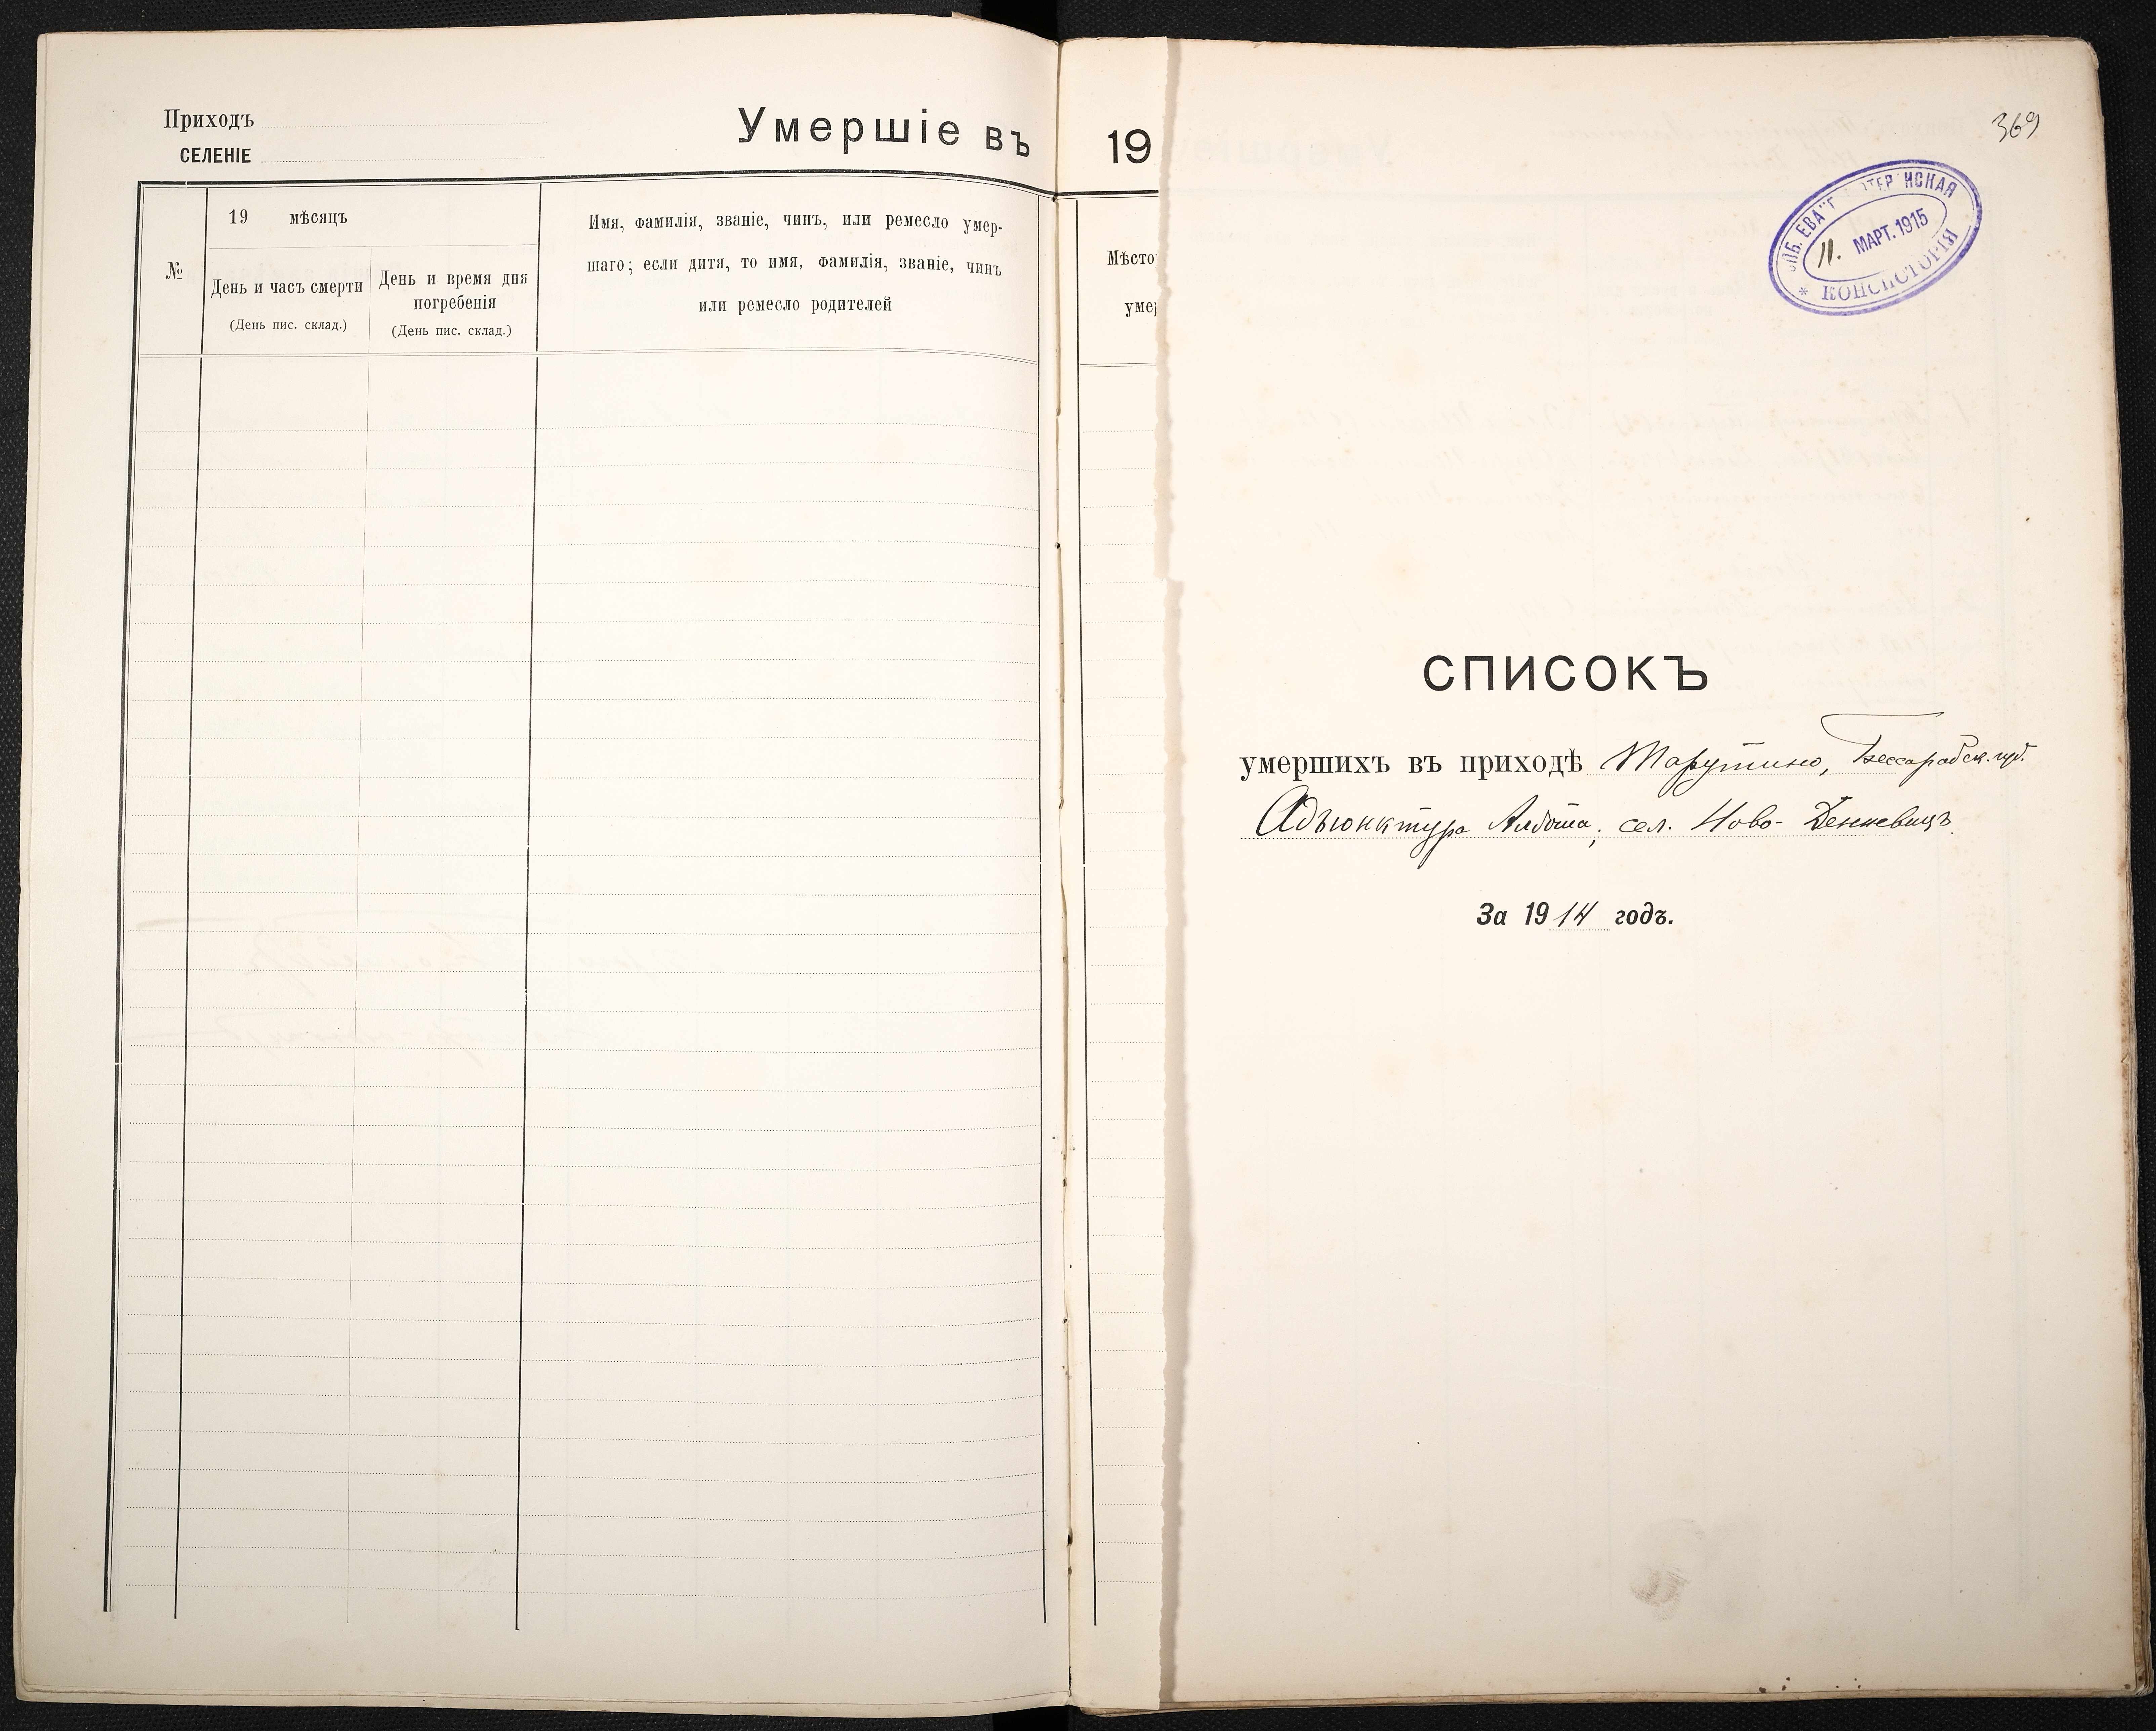 Приходъ
СЕЛЕНІЕ
Умершіе въ
№
19 мѣсяцъ
День и часъ смерти
(День пис. склад.)
День и время дня
погребенія
(День пис. склад.)
Имя, фамилія, званіе, чинъ, или ремесло умер-
шаго; если дитя, то имя, фамилія, званіе, чинъ
или ремесло родителей
19
Мѣсто
умер
369
СПБ. ЕВАНГ ЛЮТЕРАНСКАЯ
11. МАРТ. 1915
* КОНСИСТОРІЯ
СПИСОКЪ
умершихъ въ приходѣ Тарутино, Бессарабск. губ.
Адъюнктура Алвота, сел. Ново-Денневицъ
За 1914 годъ.